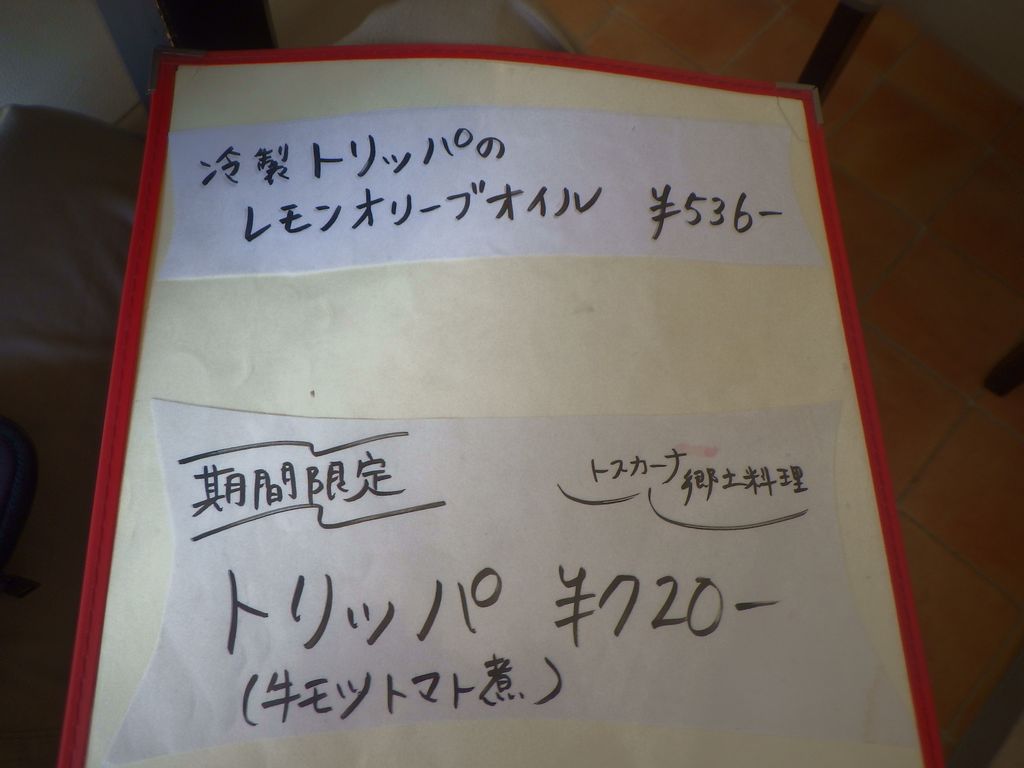 冷製トリッパの
レモンオリーブオイル ¥536-
期間限定
トスカーナ郷土料理
トリッパ ¥720-
(牛モツトマト煮)